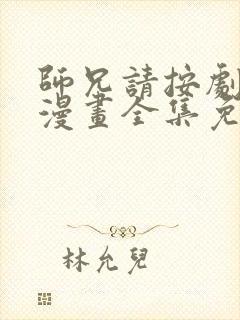 師兄請按劇
漫畫全集免
林允兒